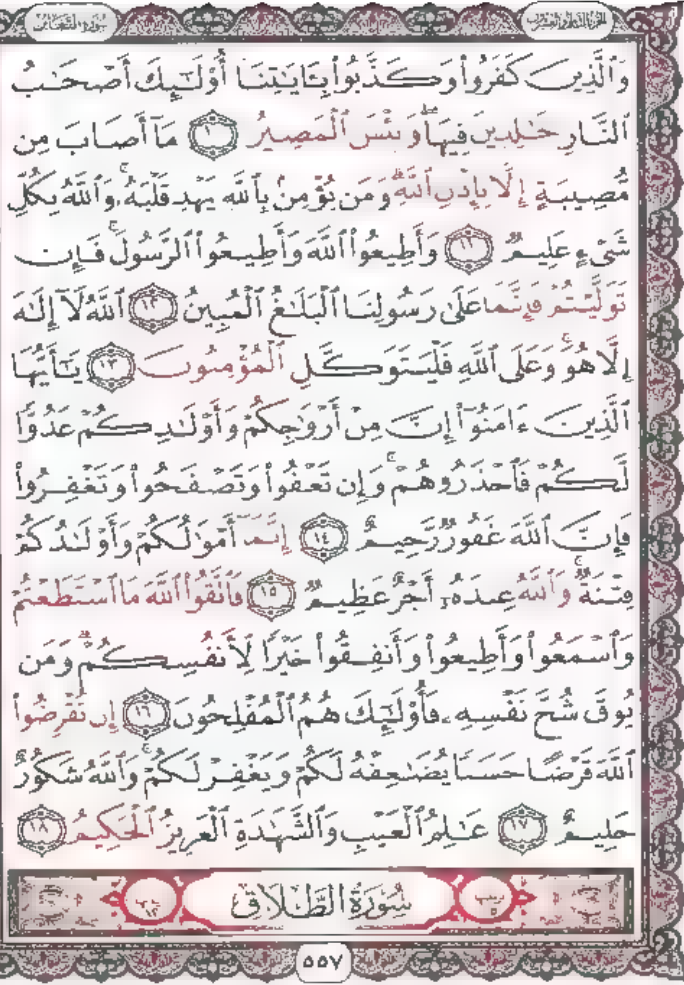 سُورَةُ التَّغَابُنِ
وَٱلَّذِينَ كَفَرُوا۟ وَكَذَّبُوا۟ بِـَٔايَـٰتِنَآ أُو۟لَـٰٓئِكَ أَصْحَـٰبُ
ٱلنَّارِ خَـٰلِدِينَ فِيهَا ۖ وَبِئْسَ ٱلْمَصِيرُ ١٠ مَآ أَصَابَ مِن
مُّصِيبَةٍ إِلَّا بِإِذْنِ ٱللَّهِ ۗ وَمَن يُؤْمِنۢ بِٱللَّهِ يَهْدِ قَلْبَهُۥ ۚ وَٱللَّهُ بِكُلِّ
شَىْءٍ عَلِيمٌ ١١ وَأَطِيعُوا۟ ٱللَّهَ وَأَطِيعُوا۟ ٱلرَّسُولَ ۚ فَإِن
تَوَلَّيْتُمْ فَإِنَّمَا عَلَىٰ رَسُولِنَا ٱلْبَلَـٰغُ ٱلْمُبِينُ ١٢ ٱللَّهُ لَآ إِلَـٰهَ
إِلَّا هُوَ ۚ وَعَلَى ٱللَّهِ فَلْيَتَوَكَّلِ ٱلْمُؤْمِنُونَ ١٣ يَـٰٓأَيُّهَا
ٱلَّذِينَ ءَامَنُوٓا۟ إِنَّ مِنْ أَزْوَٰجِكُمْ وَأَوْلَـٰدِكُمْ عَدُوًّا
لَّكُمْ فَٱحْذَرُوهُمْ ۚ وَإِن تَعْفُوا۟ وَتَصْفَحُوا۟ وَتَغْفِرُوا۟
فَإِنَّ ٱللَّهَ غَفُورٌ رَّحِيمٌ ١٤ إِنَّمَآ أَمْوَٰلُكُمْ وَأَوْلَـٰدُكُمْ
فِتْنَةٌ ۚ وَٱللَّهُ عِندَهُۥٓ أَجْرٌ عَظِيمٌ ١٥ فَٱتَّقُوا۟ ٱللَّهَ مَا ٱسْتَطَعْتُمْ
وَٱسْمَعُوا۟ وَأَطِيعُوا۟ وَأَنفِقُوا۟ خَيْرًا لِّأَنفُسِكُمْ ۗ وَمَن
يُوقَ شُحَّ نَفْسِهِۦ فَأُو۟لَـٰٓئِكَ هُمُ ٱلْمُفْلِحُونَ ١٦ إِن تُقْرِضُوا۟
ٱللَّهَ قَرْضًا حَسَنًا يُضَـٰعِفْهُ لَكُمْ وَيَغْفِرْ لَكُمْ ۚ وَٱللَّهُ شَكُورٌ
حَلِيمٌ ١٧ عَـٰلِمُ ٱلْغَيْبِ وَٱلشَّهَـٰدَةِ ٱلْعَزِيزُ ٱلْحَكِيمُ ١٨
سُورَةُ الطَّلَاقِ
٥٥٧